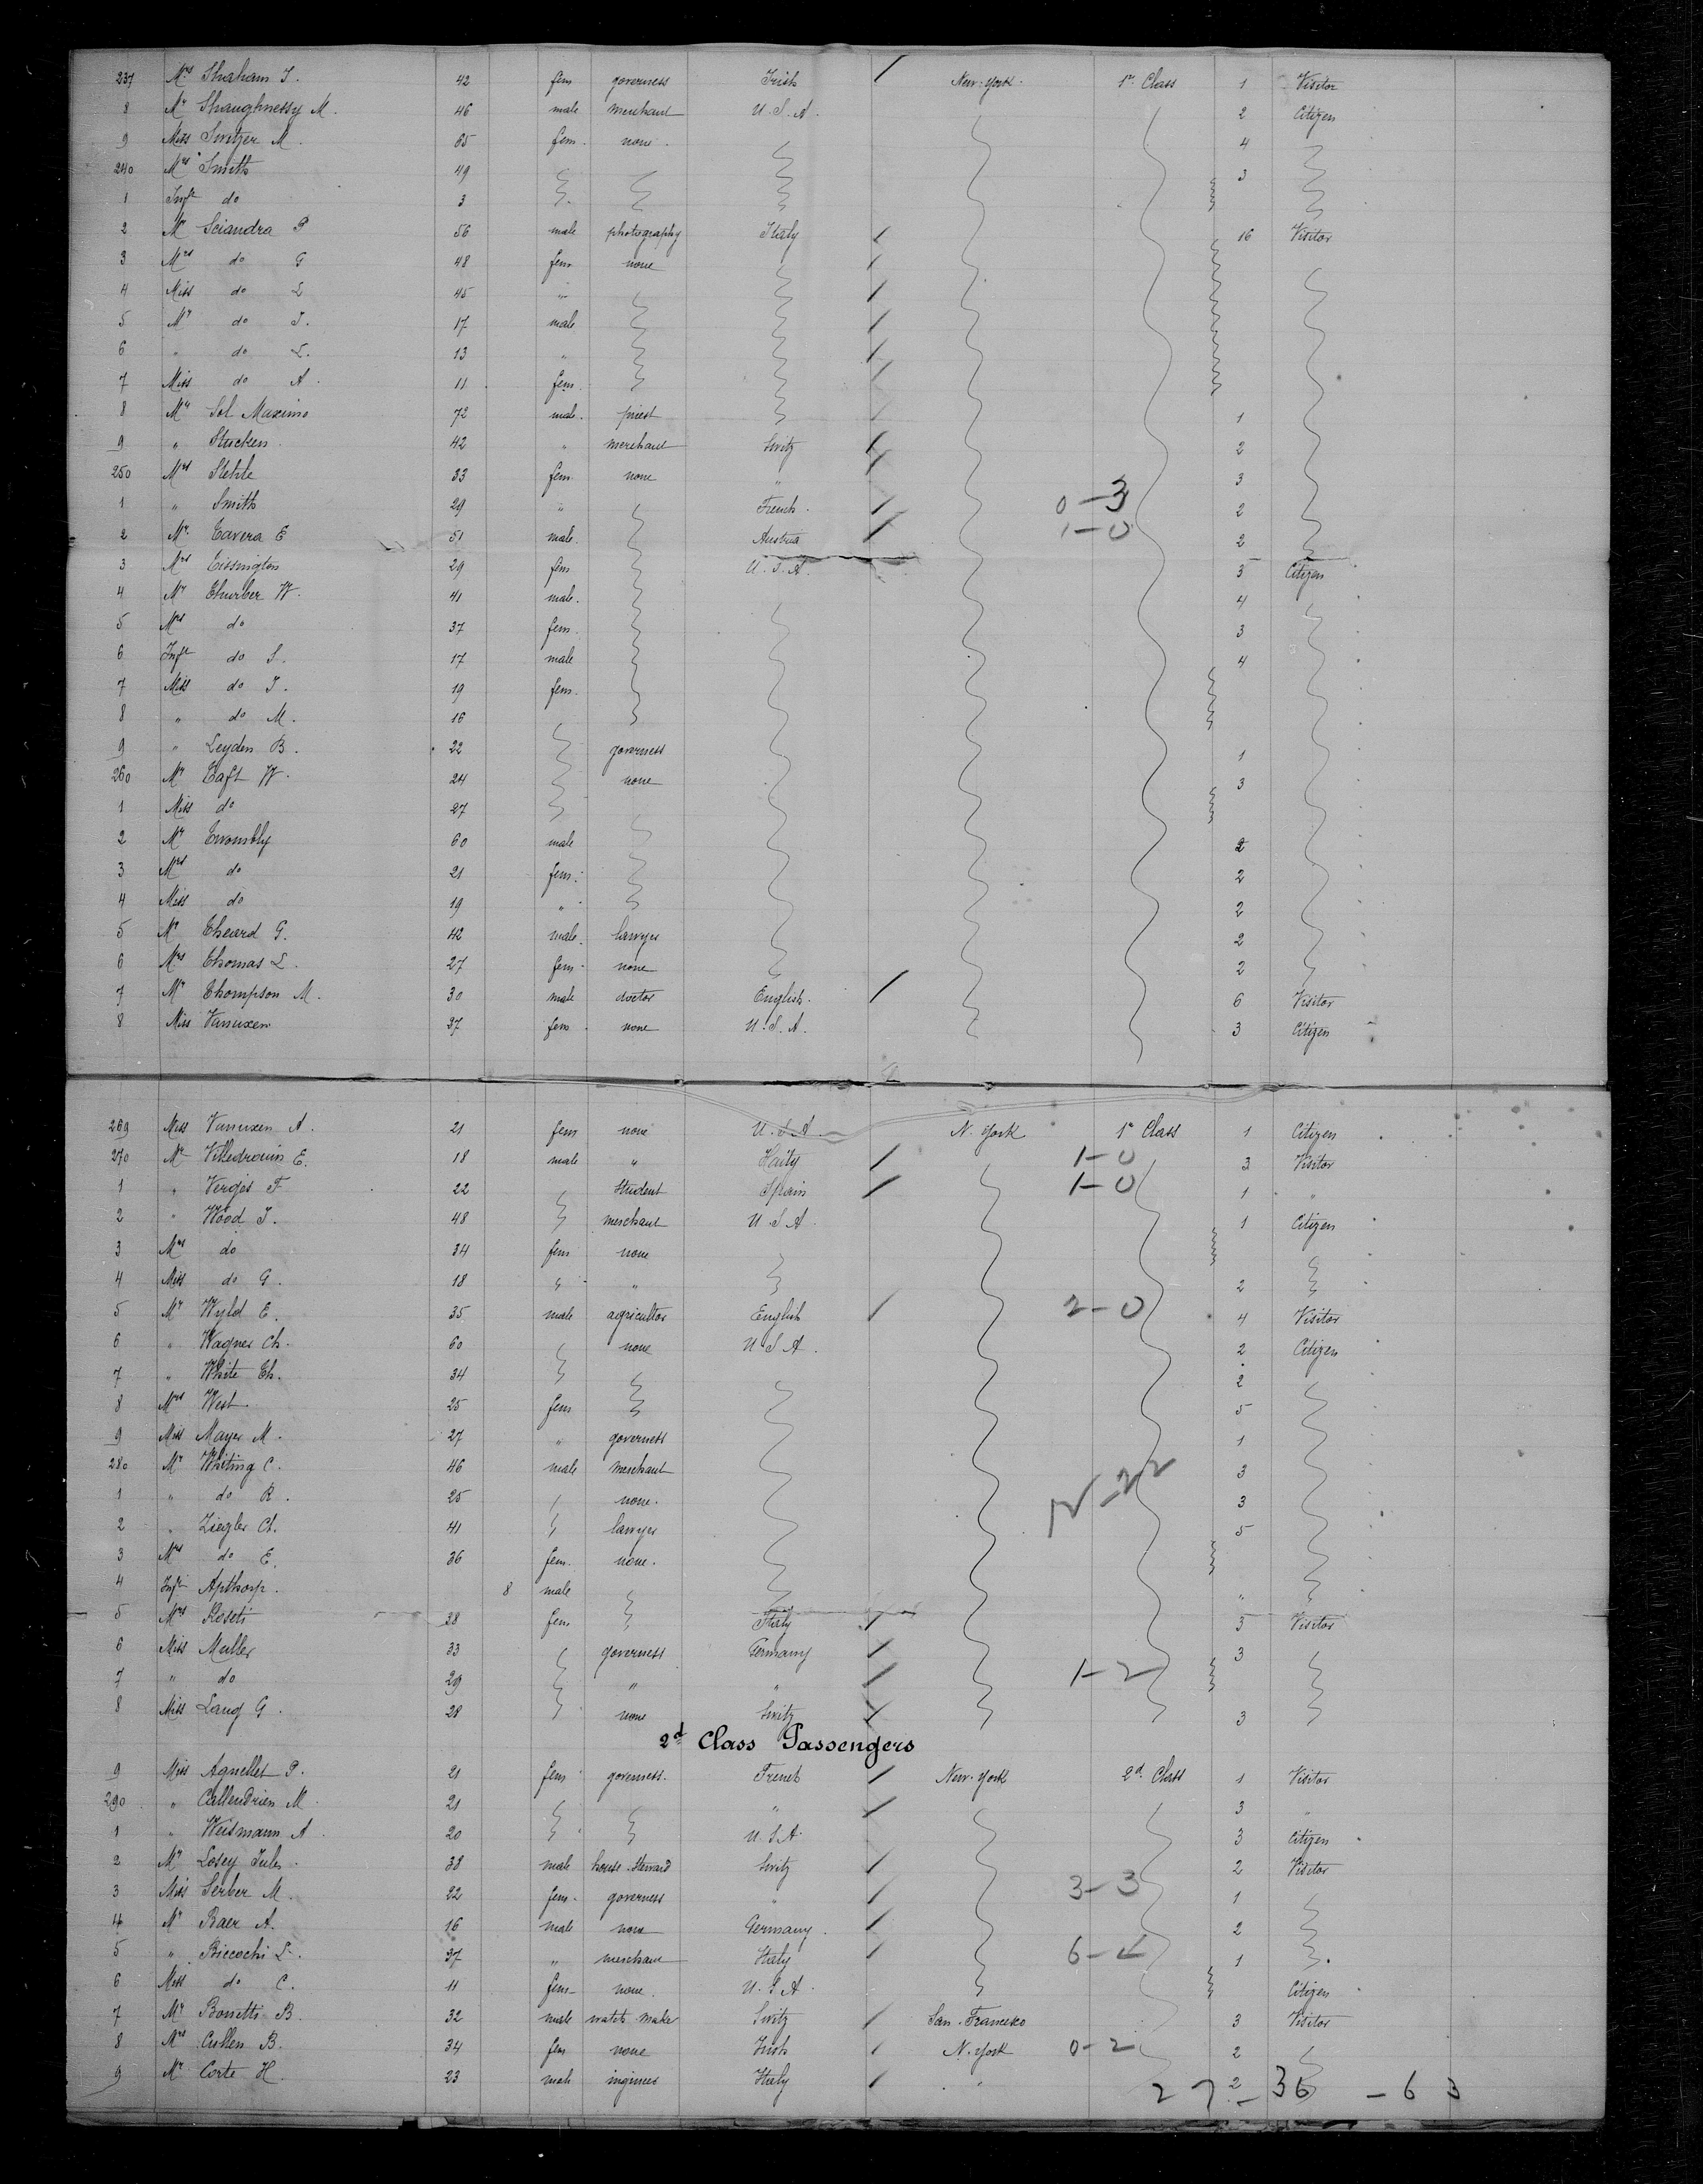 237 Mrs Shaham J. 42 fem governess Irish / New-York 1r Class 1 Visitor
8 Mr Shaughnessy M. 46 male merchant U.S.A. 2 Citizen
9 Miss Switzer M. 65 fem. none. 4
240 Mrs Smith 49 3
1 Inft do 3
2 Mr Sciandra P 56 male photography Italy / 16 Visitor
3 Mrs do G 48 fem none /
4 Miss do L 45 " /
5 Mr do J. 17 male /
6 " do L. 13 " /
7 Miss do A. 11 fem. /
8 Mr Sol Maximo 72 male. priest / 1
9 " Stucken 42 " merchant Switz / 2
250 Mrs Stehle 33 fem. none " / 3
1 " Smith 29 " French. / 0-3 2
2 Mr. Tavera E 51 male. Austria / 1-0 2
3 Mrs Tissington 29 fem U.S.A. 3 Citizen
4 Mr Thurber W. 41 male. 4
5 Mrs do 37 fem. 3
6 Inft do S. 17 male 4
7 Miss do J. 19 fem.
8 " do M. 16
9 " Leyden B. 22 governess 1
260 Mr Taft W. 24 none 3
1 Miss do 27
2 Mr Twombly 60 male 2
3 Mrs do 21 fem. 2
4 Miss do 19 " 2
5 Mr Theard G. 42 male. lawyer 2
6 Mrs Thomas L. 27 fem. none 2
7 Mr Thompson M. 30 male doctor English. / 6 Visitor
8 Miss Vanuxen 37 fem. none U.S.A. 3 Citizen
269 Miss Vanuxen A. 21 fem none U.S.A. N. York 1r Class 1 Citizen
270 Mr Villedrouin E. 18 male " Haity / 1-0 3 Visitor
1 " Verges F 22 student Spain / 1-0 1 "
2 " Wood J. 48 merchant U.S.A. 1 Citizen
3 Mrs do 34 fem none
4 Miss do G. 18 " " 2
5 Mr Wyld E. 35 male agricultor English / 2-0 4 Visitor
6 " Wagner Ch. 60 none U.S.A. 2 Citizen
7 " White Th. 34 2
8 Mrs West 25 fem 5
9 Miss Mayer M. 27 " governess 1
280 Mr Whiting C. 46 male merchant 3
1 " do R. 25 none. 3
2 " Ziegler Ch. 41 lawyer 5
3 Mrs do E. 36 fem. none.
4 Inft Apthorp. 8 male "
5 Mrs Roseti 38 fem Italy / 3 Visitor
6 Miss Muller 33 governess Germany / 3
7 " do 29 " " / 1-2
8 Miss Lang G. 28 none Switz / 3
2d Class Passengers
9 Miss Agnellet P. 21 fem governess. French / New-York 2d. Class 1 Visitor
290 " Callendrien M. 21 " / 3 "
1 " Weismann A. 20 U.S.A. 3 Citizen
2 Mr Losey Jules. 38 male house Steward Switz / 2 Visitor
3 Miss Serber M. 22 fem. governess " / 3-3 1
4 Mr Baer A. 16 male none Germany. / 2
5 " Biccochi L. 37 " merchant Italy / 1
6 Miss do C. 11 fem none. U.S.A. Citizen
7 Mr Bonetti B. 32 male watch maker Switz / San Francisco 3 Visitor
8 Mrs Cullen B. 34 fem none Irish / N. York 0-2 2
9 Mr Corte H. 23 male ingineer Italy / " 2
27 - 36 - 63